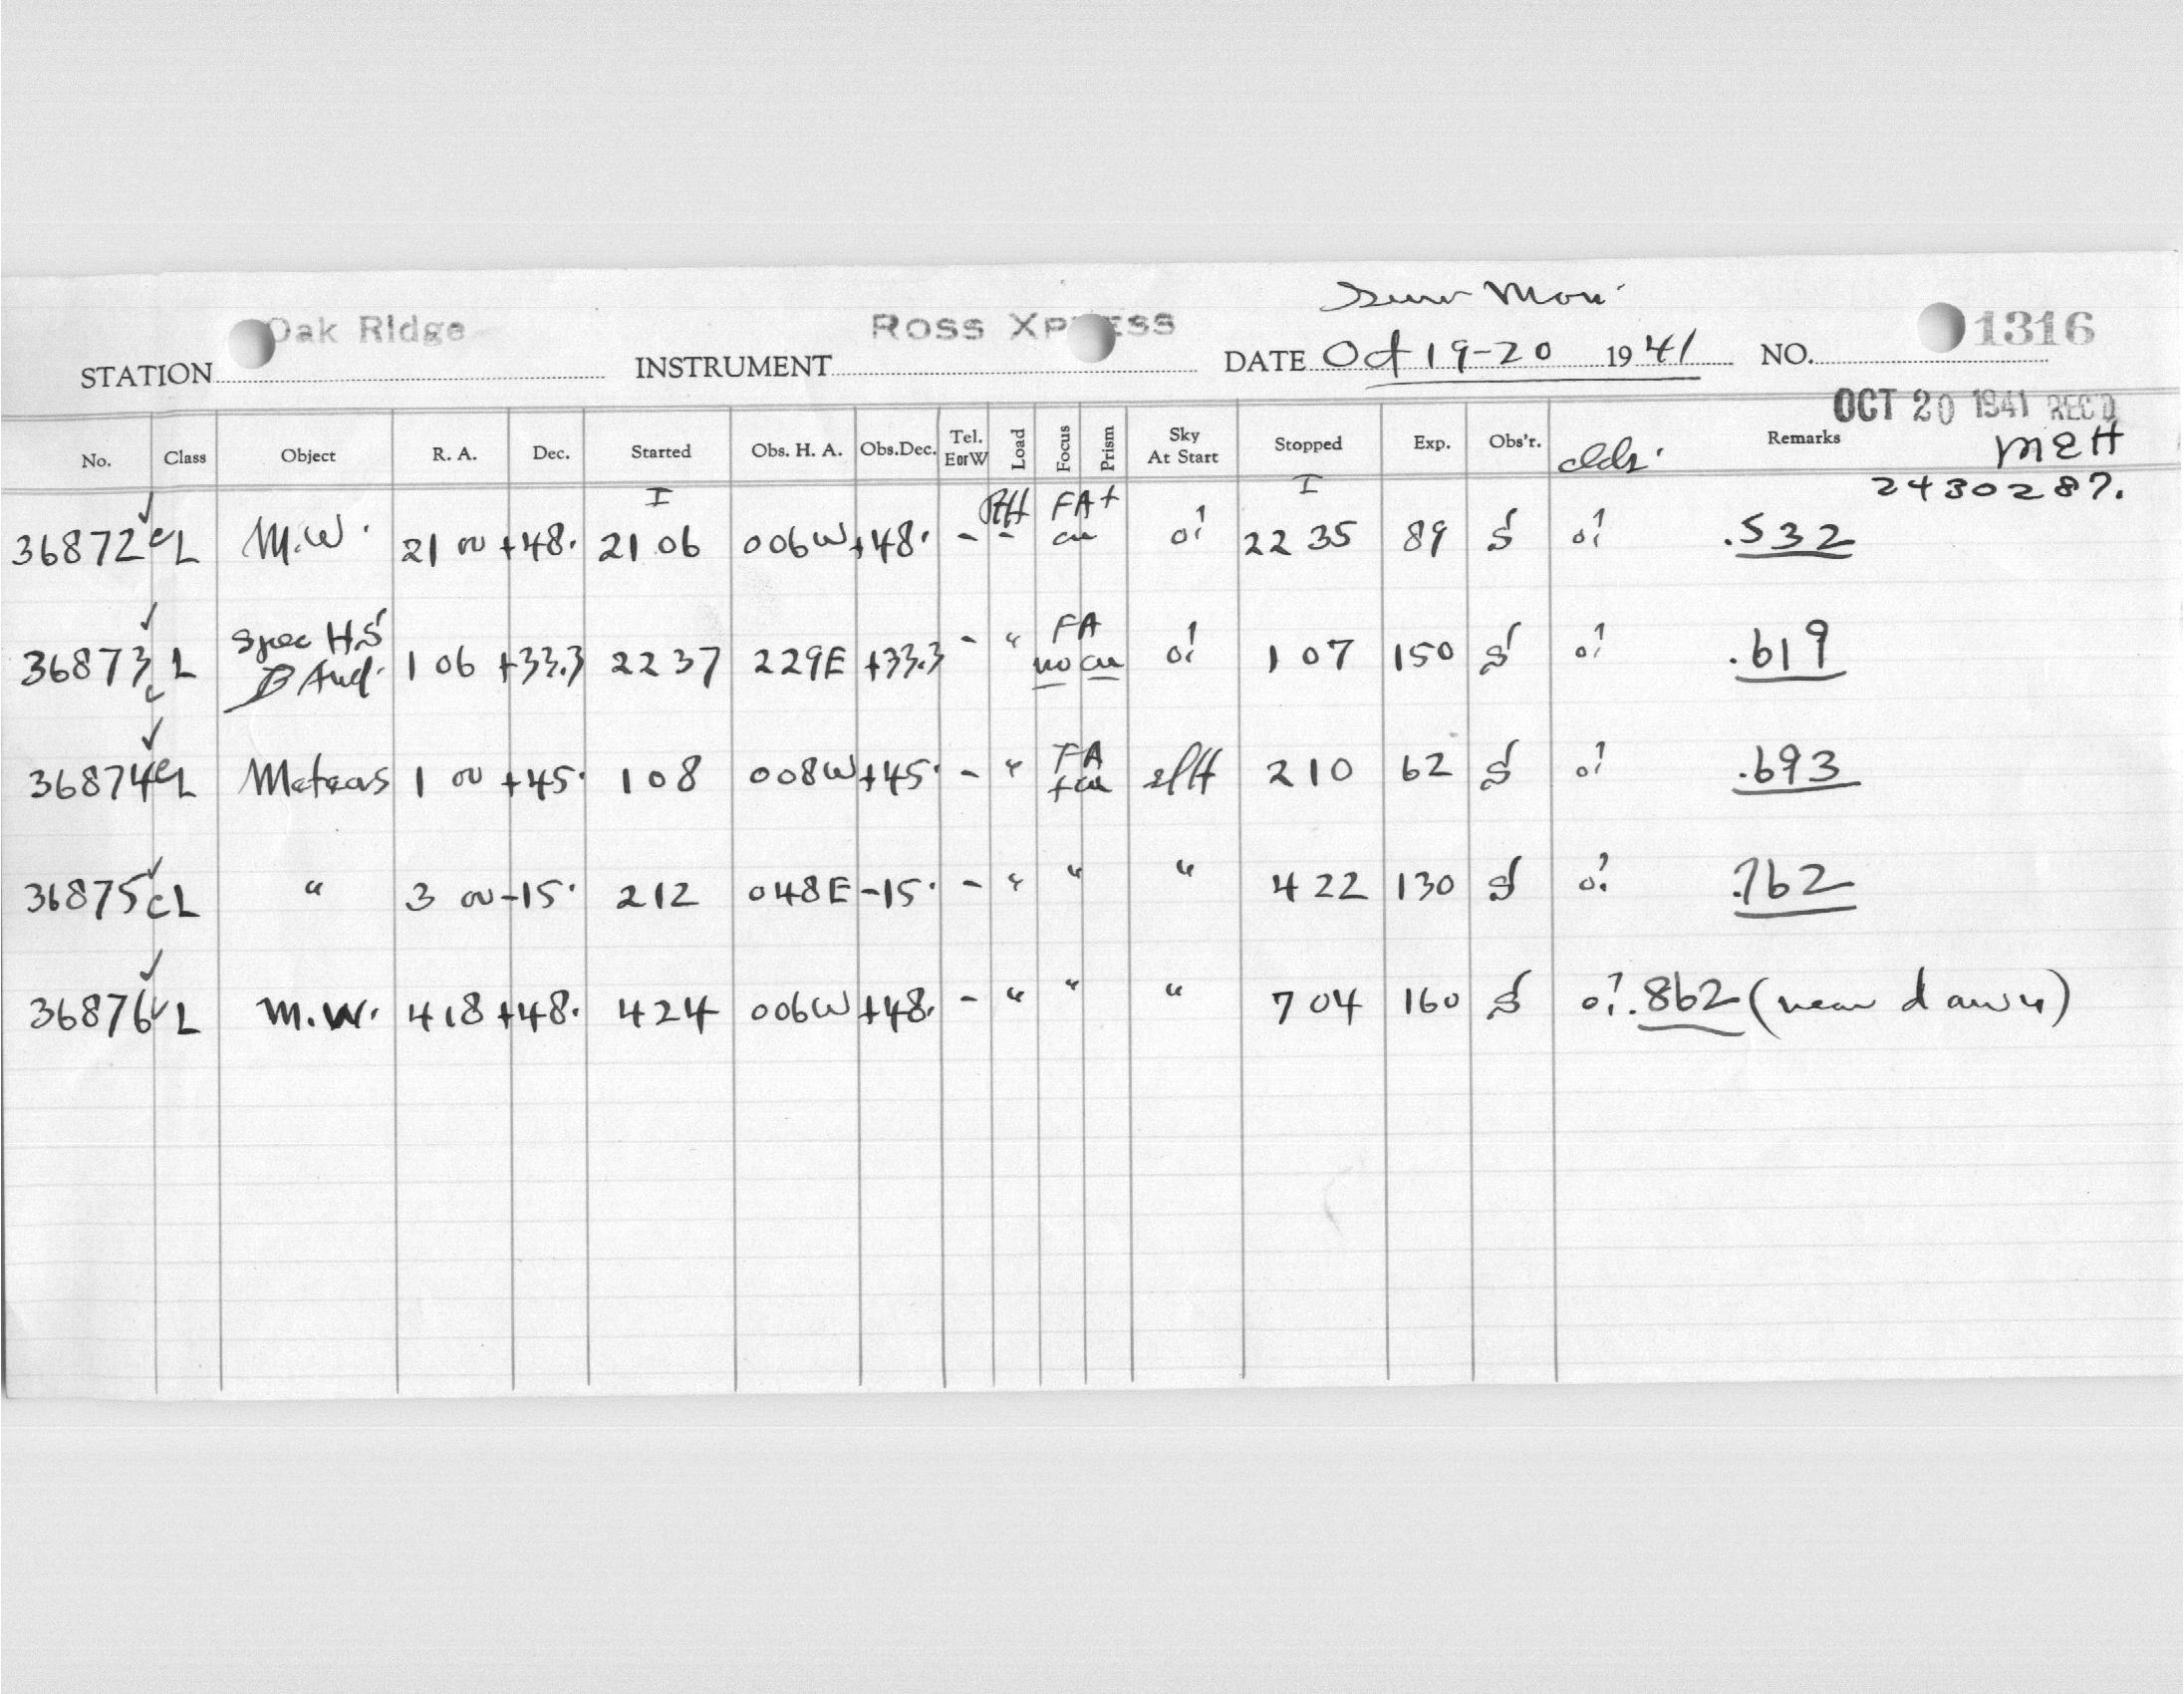 Oak Ridge Ross Xpress Mon. 1316
STATION INSTRUMENT DATE Oct 19-20 1941 NO.
OCT 20 1941 REC'D
No. Class Object R. A. Dec. Started Obs. H. A. Obs.Dec. Tel. E or W Load Focus Prism Sky At Start Stopped Exp. Obs'r. clds. Remarks MEH
I I 2430287.
36872 cL M.W. 21 00 +48. 21 06 006W +48. - - FA+ cu 0! 22 35 89 S 0! .532
36873 cL Spec H.S β And. 1 06 +33.3 22 37 229E +33.3 - " FA no cu 0! 1 07 150 S 0! .619
36874 cL Meteors 1 00 +45. 1 08 008W +45. - " FA +cu 2 10 62 S 0! .693
36875 cL " 3 00 -15. 2 12 048E -15. - " " " 4 22 130 S 0! .762
36876 L M.W. 4 18 +48. 4 24 006W +48. - " " " 7 04 160 S 0! .862 (near dawn)